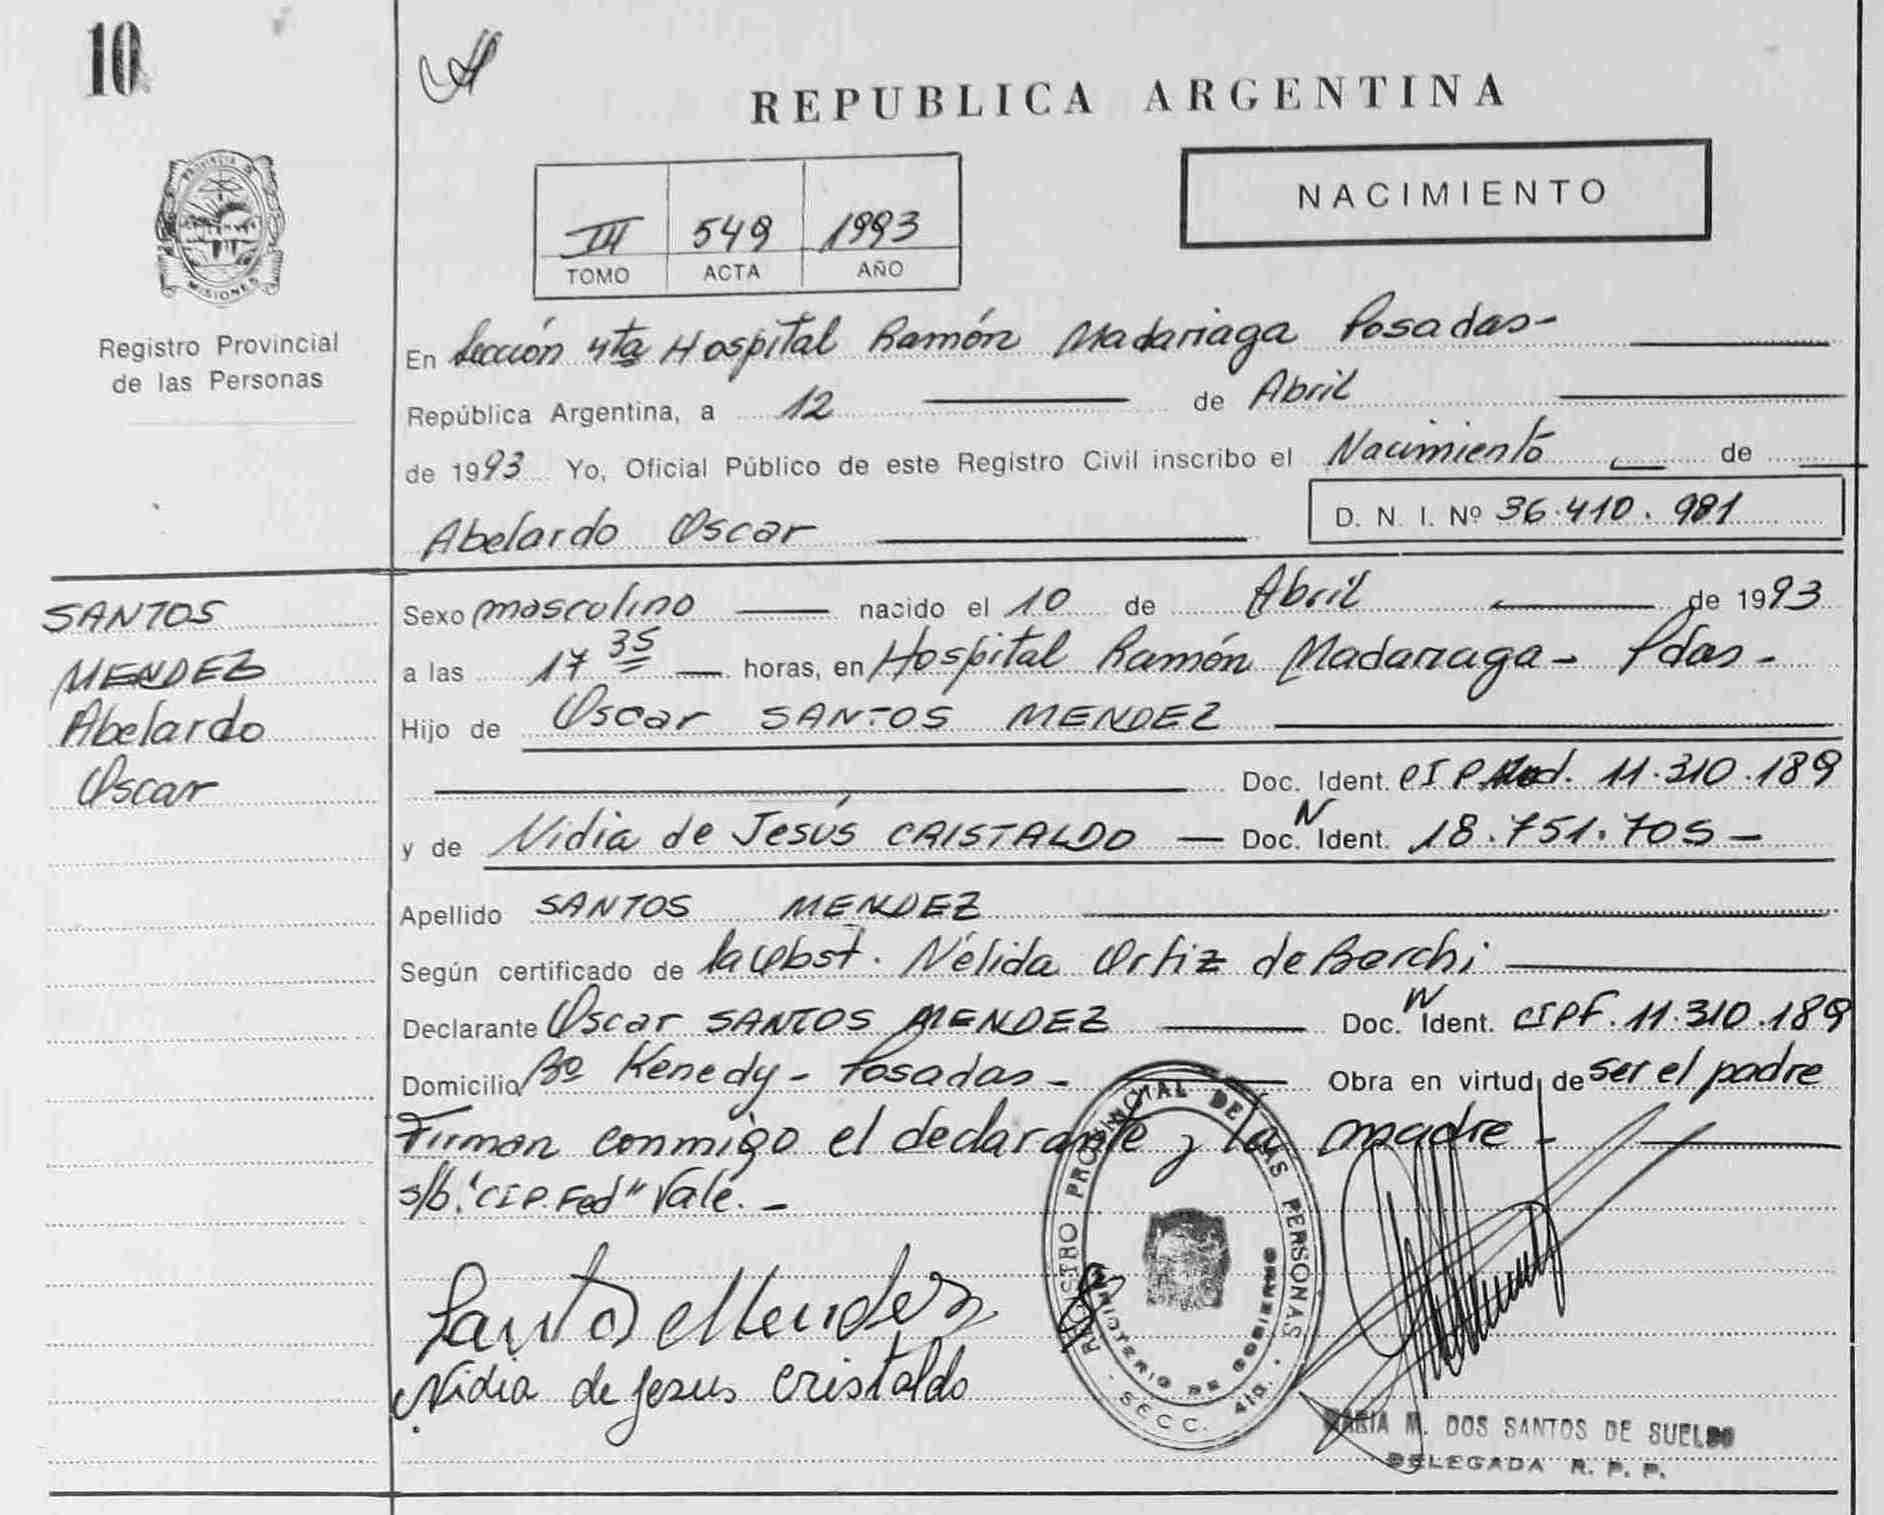 10
REPUBLICA ARGENTINA
NACIMIENTO
III 549 1993
TOMO ACTA AÑO
PROVINCIA DE
MISIONES
Registro Provincial
de las Personas
En Sección 4ta Hospital Ramón Madariaga Posadas-
República Argentina, a 12 de Abril
de 1993 Yo, Oficial Público de este Registro Civil inscribo el Nacimiento de
Abelardo Oscar D. N. I. Nº 36.410.981
SANTOS
MENDEZ
Abelardo
Oscar
Sexo masculino nacido el 10 de Abril de 1993
a las 17 35 horas, en Hospital Ramón Madariaga - Pdas-
Hijo de Oscar SANTOS MENDEZ
Doc. Ident. CI P. 11.310.189
y de Nidia de Jesús CRISTALDO — Doc. N Ident. 18.751.705 -
Apellido SANTOS MENDEZ
Según certificado de la Obst. Nélida Ortiz de Barchi
Declarante Oscar SANTOS MENDEZ Doc. N Ident. CIPF. 11.310.189
Domicilio Bº Kenedy - Posadas - Obra en virtud de ser el padre
Firman conmigo el declarante y la madre -
s/b. "CI P. Fed" Vale. -
Santos Mendez
Nidia de Jesus Cristaldo
REGISTRO PROVINCIAL DE LAS PERSONAS
MINISTERIO DE GOBIERNO
SECC. 4ta.
MARIA M. DOS SANTOS DE SUELDO
DELEGADA R. P. P.